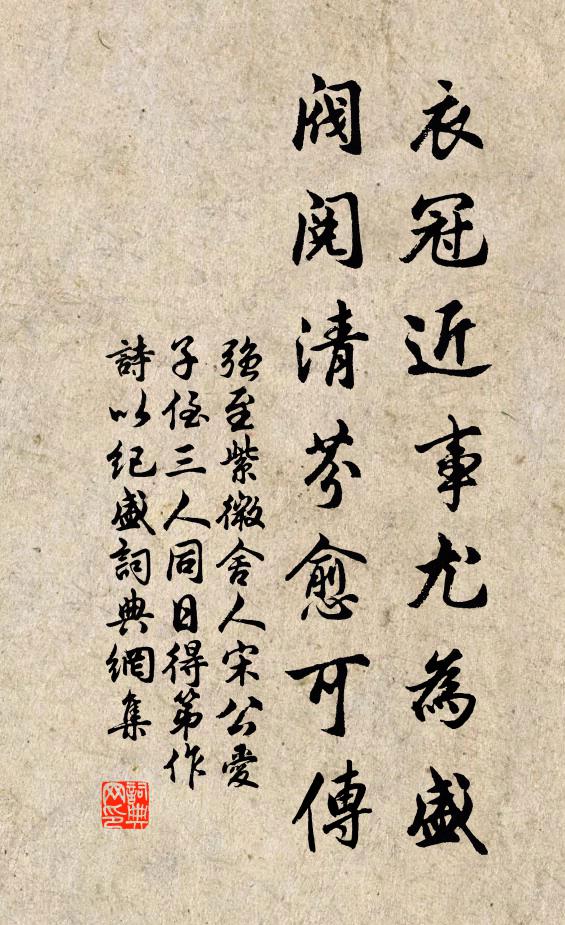 衣冠近事尤為盛
閥閱清芬愈可傳
強至紫微舍人宋公愛
子侄三人同日得第作
詩以紀盛詞典網集
詞典网印